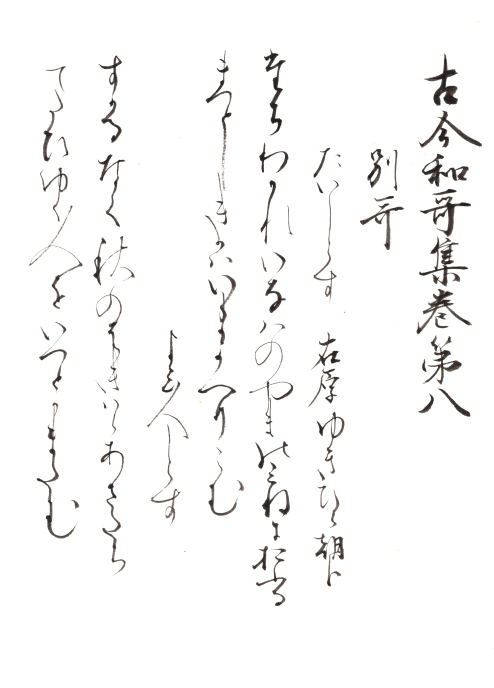 古今和哥集巻第八
別哥
たいしらす 在原ゆきひら朝臣
たちわかれいなはのやまのみねにおふる
まつとしきかはいまかへりこむ
よみ人しらす
すかるなく秋のはきはらあさたちて
たひゆく人をいつとかまたむ